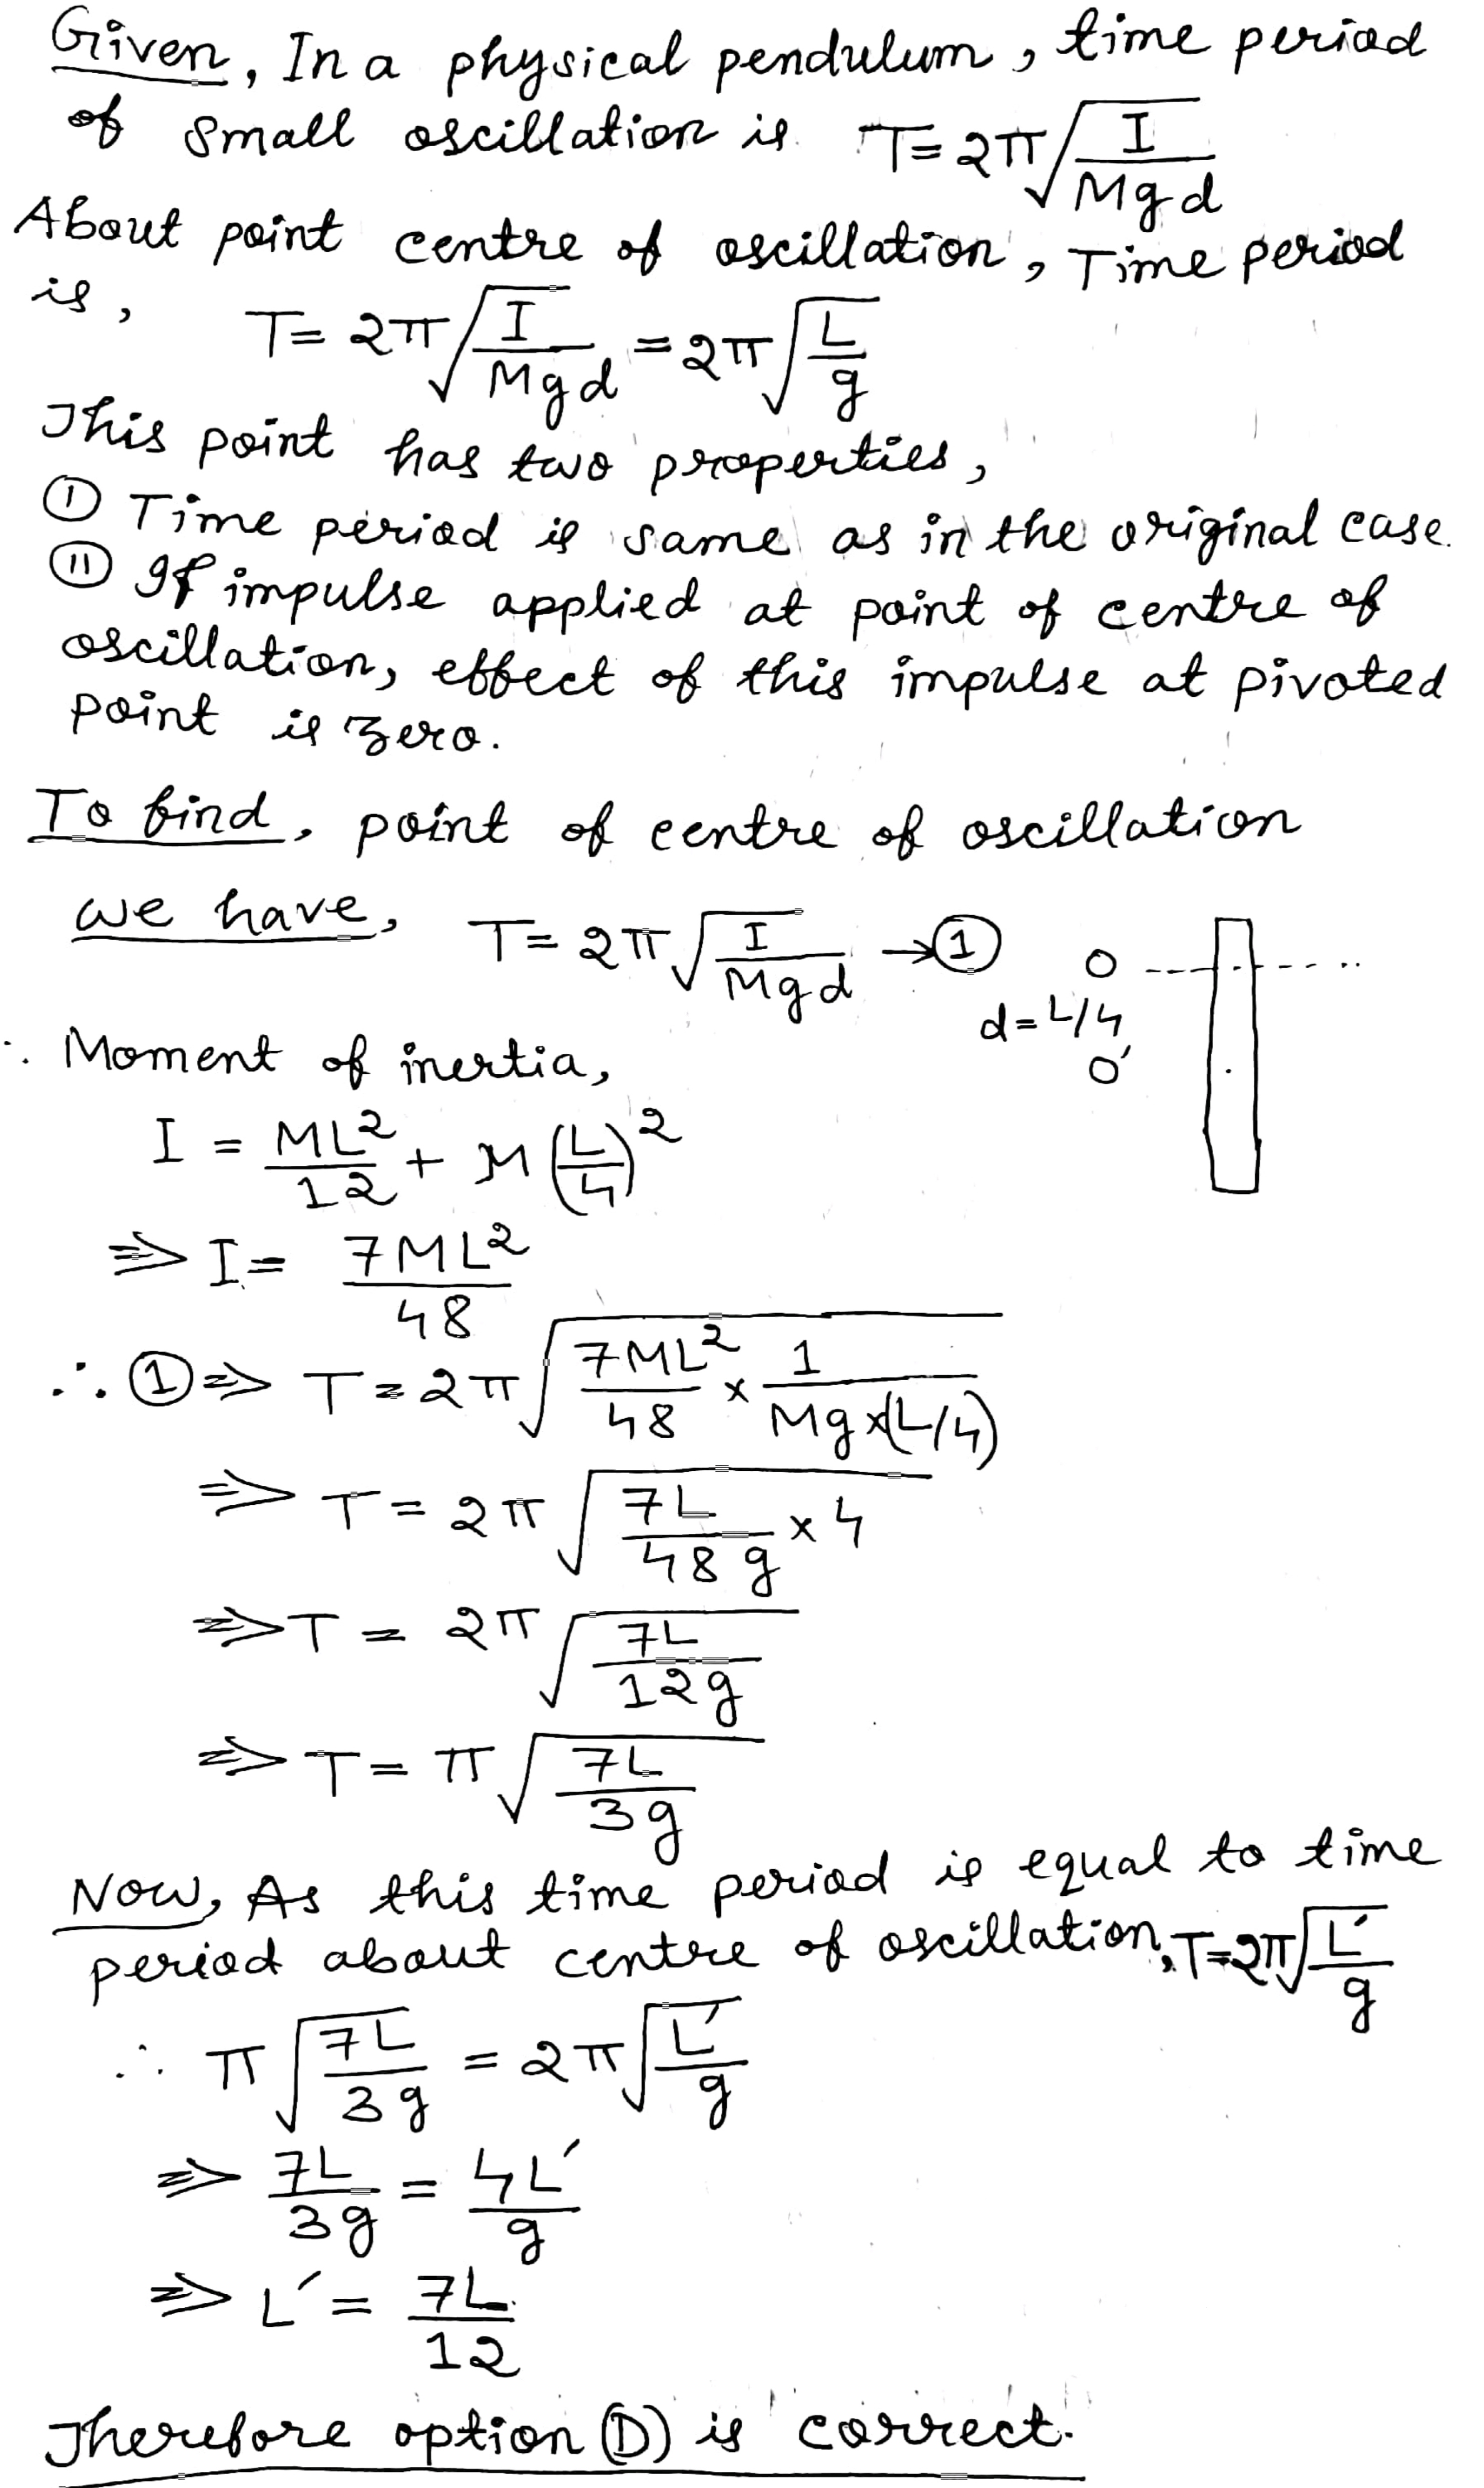 Given, In a physical pendulum, time period
of small oscillation is T = 2π√(I/Mgd)
About point centre of oscillation, Time period
is,
T = 2π√(I/Mgd) = 2π√(L/g)
This point has two properties,
(I) Time period is same as in the original case.
(II) If impulse applied at point of centre of
oscillation, effect of this impulse at pivoted
point is zero.
To find, point of centre of oscillation
we have, T = 2π√(I/Mgd) → ①
O
d = L/4
O'
∴ Moment of inertia,
I = ML²/12 + M(L/4)²
⇒ I = 7ML²/48
∴ ① ⇒ T = 2π√(7ML²/48 × 1/(Mg×(L/4)))
⇒ T = 2π√(7L/48g × 4)
⇒ T = 2π√(7L/12g)
⇒ T = π√(7L/3g)
Now, As this time period is equal to time
period about centre of oscillation, T = 2π√(L'/g)
∴ π√(7L/3g) = 2π√(L'/g)
⇒ 7L/3g = 4L'/g
⇒ L' = 7L/12
Therefore option (D) is correct.